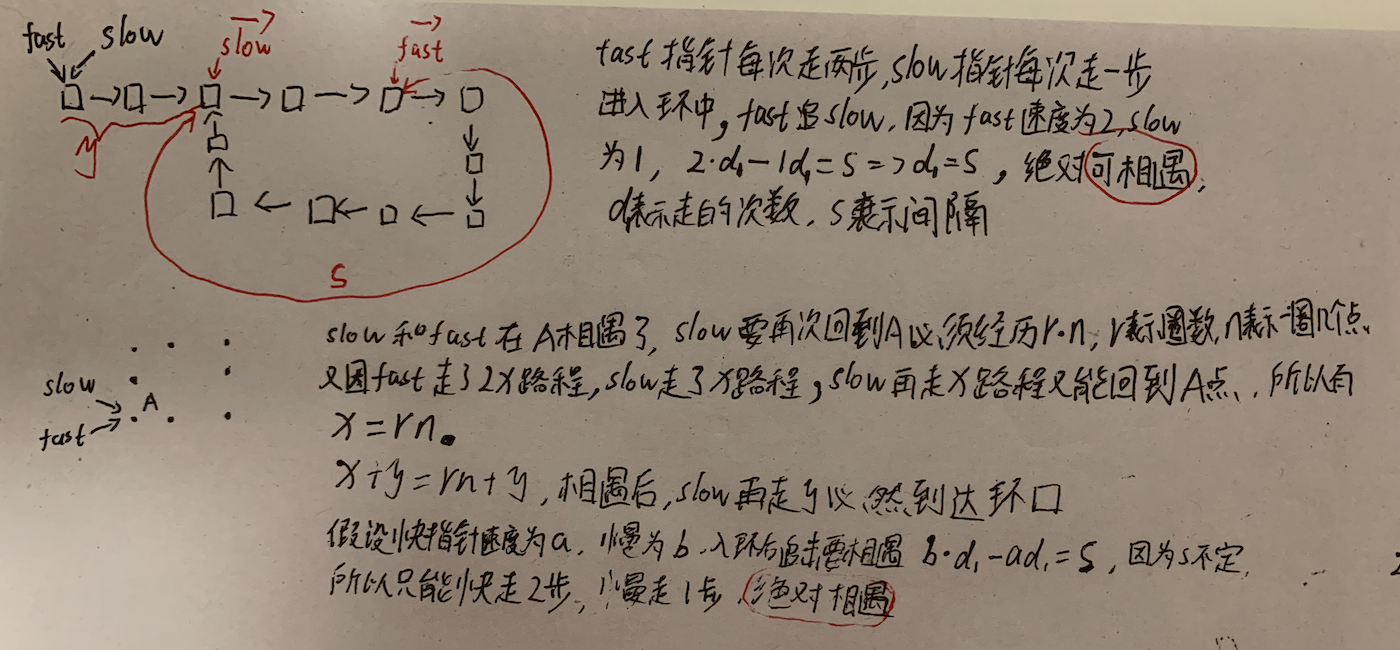 fast slow slow fast
y
S
fast指针每次走两步,slow指针每次走一步
进入环中,fast追slow.因为fast速度为2,slow
为1, 2·d₁-1d₁=S=>d₁=S, 绝对可相遇,
d表示走的次数,S表示间隔
slow和fast在A相遇了,slow要再次回到A必须经历r·n,r表示圈数,n表示一圈几个点.
又因fast走了2X路程,slow走了X路程,slow再走X路程又能回到A点.所以有
slow
A
fast
X=rn。
X+y=rn+y,相遇后,slow再走y必然到达环口
假设快指针速度为a,慢为b.入环后追击要相遇 b·d₁-ad₁=S,因为S不定,
所以只能快走2步,慢走1步.绝对相遇